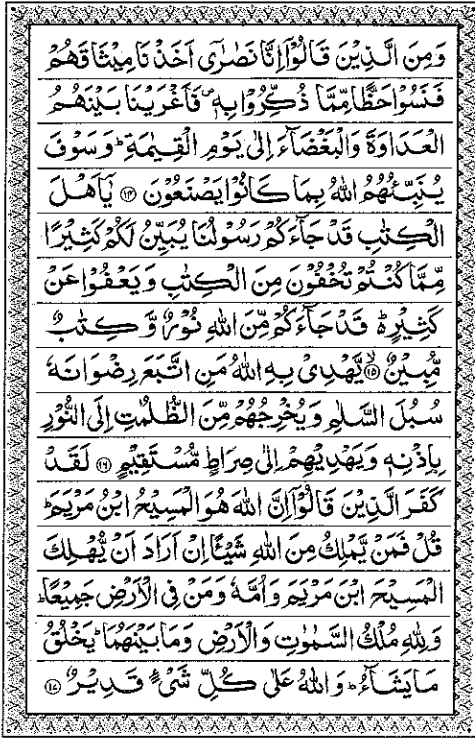 وَمِنَ الَّذِيْنَ قَالُوْٓا اِنَّا نَصٰرٰٓى اَخَذْنَا مِيْثَاقَهُمْ
فَنَسُوْا حَظًّا مِّمَّا ذُكِّرُوْا بِهٖ ۪ فَاَغْرَيْنَا بَيْنَهُمُ
الْعَدَاوَةَ وَالْبَغْضَآءَ اِلٰى يَوْمِ الْقِيٰمَةِ ؕ وَسَوْفَ
يُنَبِّئُهُمُ اللّٰهُ بِمَا كَانُوْا يَصْنَعُوْنَ ﴿۱۴﴾ يٰٓاَهْلَ
الْكِتٰبِ قَدْ جَآءَكُمْ رَسُوْلُنَا يُبَيِّنُ لَكُمْ كَثِيْرًا
مِّمَّا كُنْتُمْ تُخْفُوْنَ مِنَ الْكِتٰبِ وَيَعْفُوْا عَنْ
كَثِيْرٍ ۬ؕ قَدْ جَآءَكُمْ مِّنَ اللّٰهِ نُوْرٌ وَّ كِتٰبٌ
مُّبِيْنٌ ﴿ۙ۱۵﴾ يَّهْدِىْ بِهِ اللّٰهُ مَنِ اتَّبَعَ رِضْوَانَهٗ
سُبُلَ السَّلٰمِ وَيُخْرِجُهُمْ مِّنَ الظُّلُمٰتِ اِلَى النُّوْرِ
بِاِذْنِهٖ وَيَهْدِيْهِمْ اِلٰى صِرَاطٍ مُّسْتَقِيْمٍ ﴿۱۶﴾ لَقَدْ
كَفَرَ الَّذِيْنَ قَالُوْٓا اِنَّ اللّٰهَ هُوَ الْمَسِيْحُ ابْنُ مَرْيَمَ ؕ
قُلْ فَمَنْ يَّمْلِكُ مِنَ اللّٰهِ شَيْئًا اِنْ اَرَادَ اَنْ يُّهْلِكَ
الْمَسِيْحَ ابْنَ مَرْيَمَ وَاُمَّهٗ وَمَنْ فِى الْاَرْضِ جَمِيْعًا ؕ
وَلِلّٰهِ مُلْكُ السَّمٰوٰتِ وَالْاَرْضِ وَمَا بَيْنَهُمَا ؕ يَخْلُقُ
مَا يَشَآءُ ؕ وَاللّٰهُ عَلٰى كُلِّ شَىْءٍ قَدِيْرٌ ﴿۱۷﴾